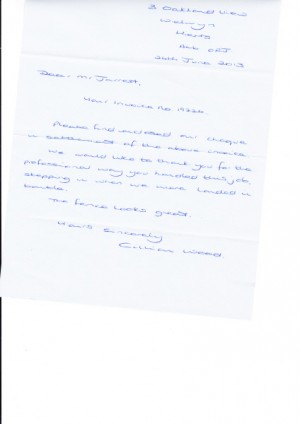 3 Oakland View
Welwyn
Herts
24th June 2013
Dear Mr Jarrett,
Your Invoice No
Please find enclosed our cheque
in settlement of the above invoice
We would like to thank you for the
professional way you handled this job,
stepping in when we were landed in
trouble.
The fence looks great.
Yours Sincerely
Gillian Wood